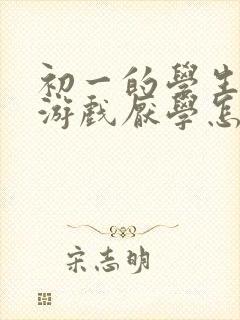 初一的學生
游戲厭學怎
宋志明